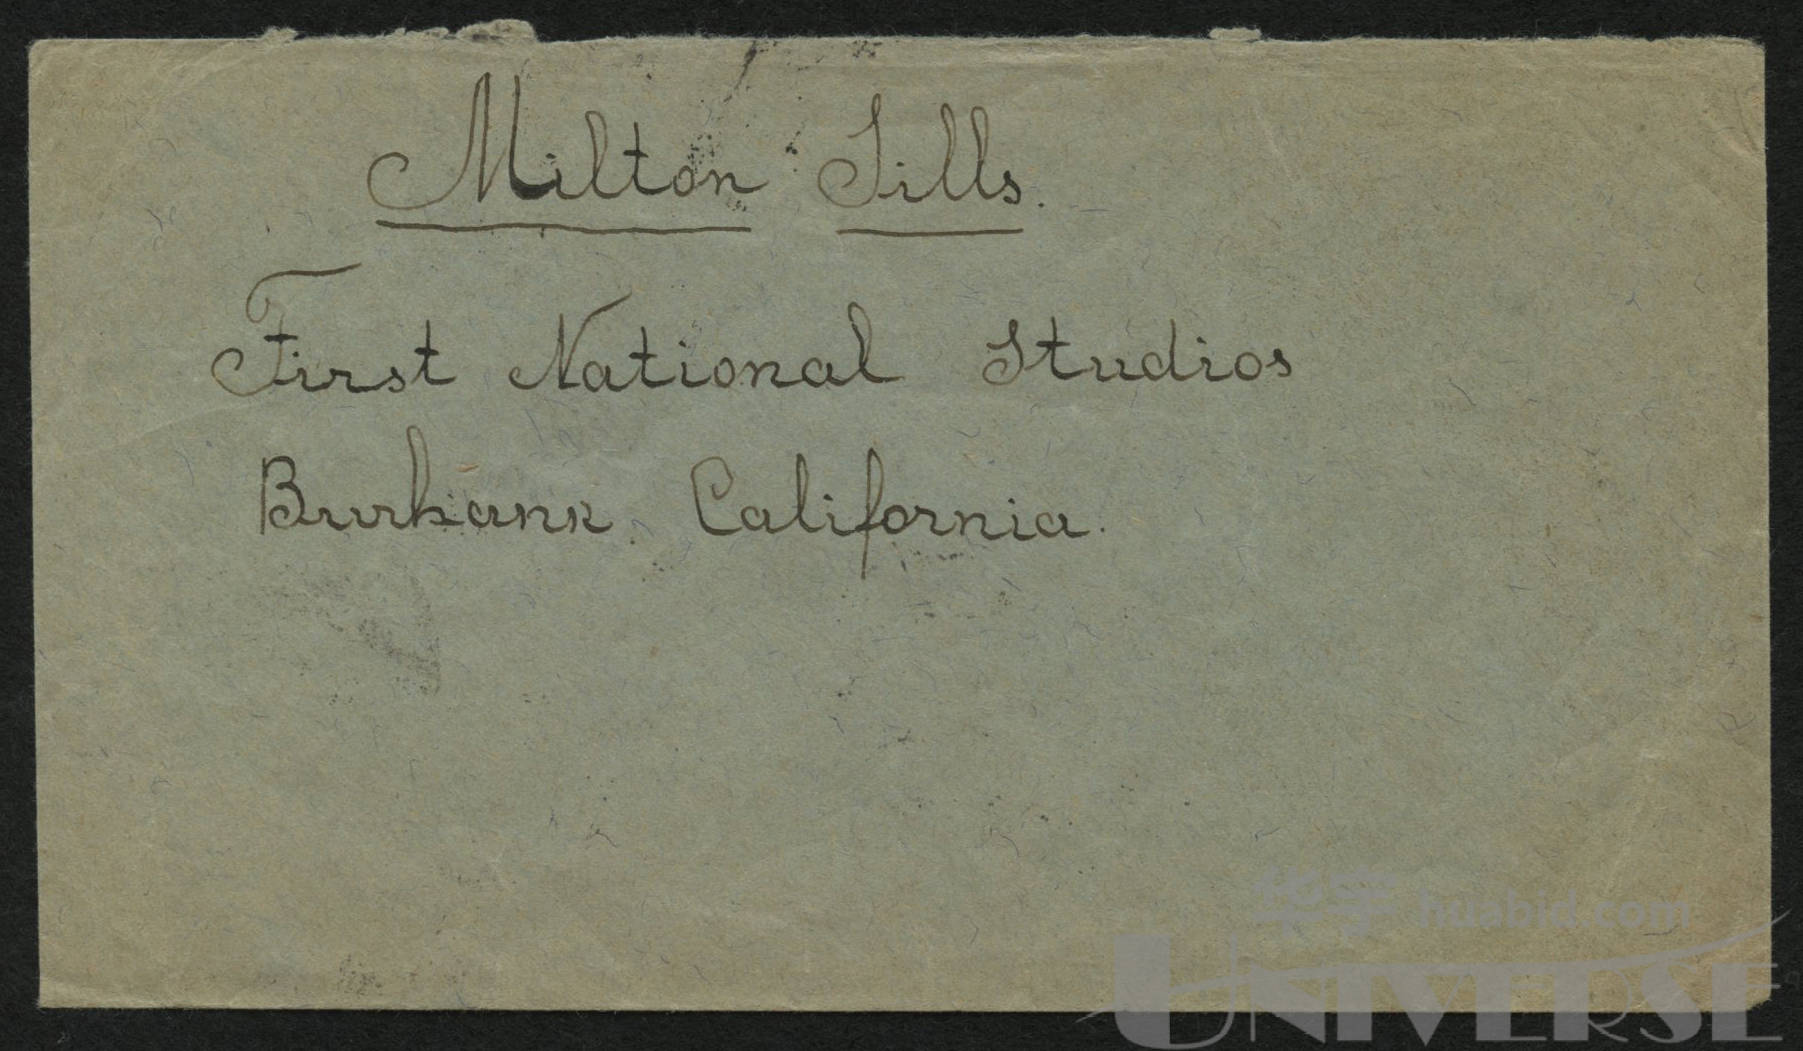 Milton Sills.
First National Studios
Burbank. California.
华宇 huabid.com
UNIVERSE